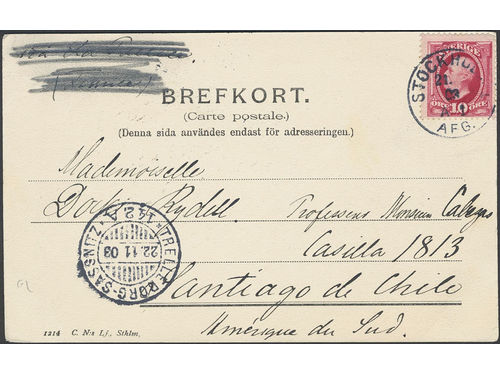 SVERIGE
ÖRE 10 ÖRE
STOCKHOLM
21.
03
AFG.
BREFKORT.
(Carte postale.)
(Denna sida användes endast för adresseringen.)
Mademoiselle
Rydell.
Professeur Monsieur
Casilla 1813
Santiago de Chile
Amérique du Sud.
TRELLEBORG-SASSNITZ
142 A
22 11 03
1214 C. N:s Lj., Sthlm.